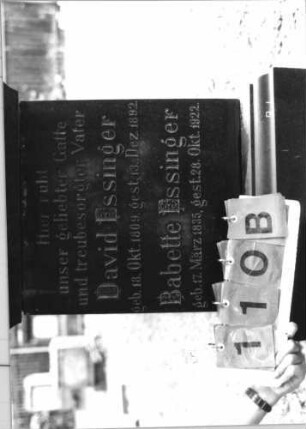 Hier ruht
unser geliebter Gatte
und treubesorgter Vater
David Essinger
geb. 18. Okt. 1809, gest. 13. Dez. 1892.
Babette Essinger
geb. 17. März 1825, gest. 28. Okt. 1922.
110B